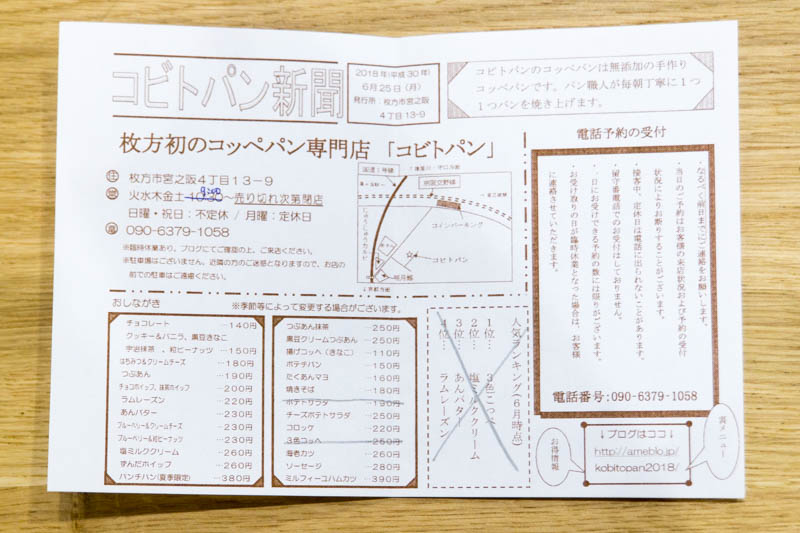 コビトパン新聞
2018年(平成30年)
6月25日(月)
発行所:枚方市宮之阪
4丁目13-9
コビトパンのコッペパンは無添加の手作り
コッペパンです。パン職人が毎朝丁寧に1つ
1つパンを焼き上げます。
枚方初のコッペパン専門店 「コビトパン」
住 枚方市宮之阪4丁目13-9
営 火水木金土 10:30 9:00 〜売り切れ次第閉店
日曜・祝日:不定休 / 月曜:定休日
090-6379-1058
※臨時休業あり。ブログにてご確認の上、ご来店ください。
※駐車場はございません。近隣の方のご迷惑となりますので、お店の
前での駐車はご遠慮ください。
国道1号線
↑寝屋川・守口方面
府道交野線
コインパーキング
コビトパン
↓京都方面
電話予約の受付
なるべく前日までにご連絡をお願いします。
・当日のご予約はお客様の来店状況および予約の
状況によりお断りすることがございます。
・接客中、定休日は電話に出られないことがあります。
・留守番電話でのお受けはしておりません。
・一日にお受けできる予約の数には限りがございます。
お受け取りの日が臨時休業となった場合は、お客様
に連絡させていただきます。
電話番号:090-6379-1058
おしながき
※季節等によって変更する場合がございます。
チョコレート …140円
クッキー&バニラ、黒豆きなこ
宇治抹茶 、粒ピーナッツ …150円
はちみつ&クリームチーズ …180円
つぶあん …190円
チョコホイップ、抹茶ホイップ …200円
ラムレーズン …220円
あんバター …230円
ブルーベリー&クリームチーズ …230円
ブルーベリー&粒ピーナッツ …230円
塩ミルククリーム …260円
ずんだホイップ …260円
パンチパン(夏季限定) …380円
つぶあん抹茶 …250円
黒豆クリームつぶあん …250円
揚げコッペ(きなこ) …110円
ポテチパン …150円
たくあんマヨ …160円
焼きそば …180円
ポテトサラダ …190円
チーズポテトサラダ …250円
コロッケ …220円
3色コッペ …250円
海老カツ …260円
ソーセージ …280円
ミルフィーユハムカツ …390円
人気ランキング(6月時点)
1位… 3色こっぺ
2位… 塩ミルククリーム
3位… あんバター
4位… ラムレーズン
裏メニュー
お得情報
↓ブログはココ↓
http://ameblo.jp/
kobitopan2018/